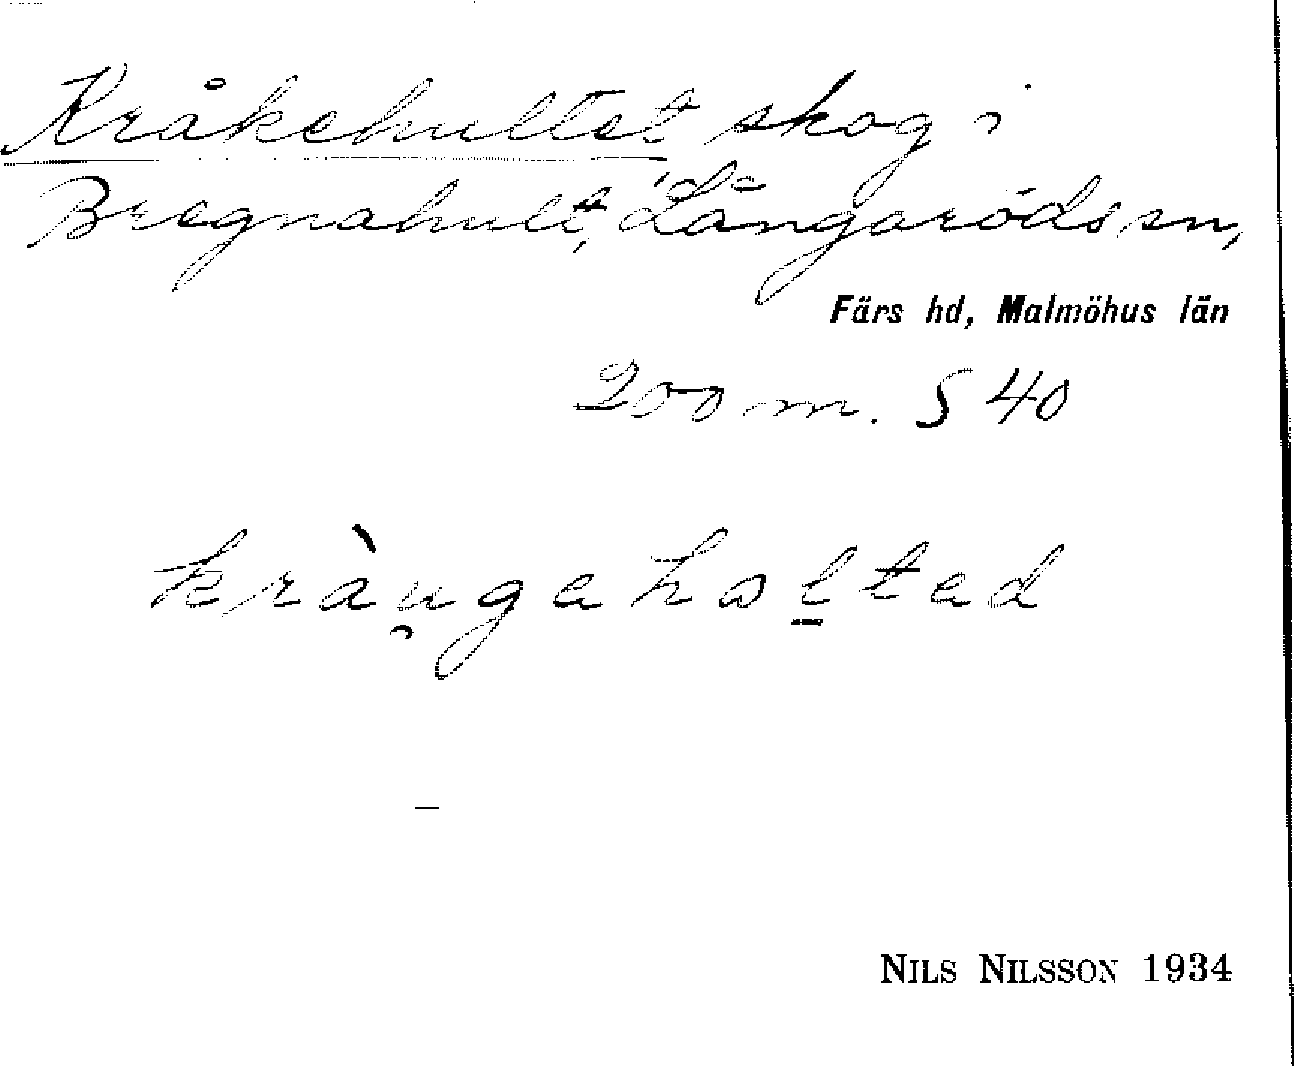 Kråkehultet, skog i
Bregnahult, Långaröds sn,
Färs hd, Malmöhus län
200 m. S 40
kràu̯gahol̲tad
NILS NILSSON 1934